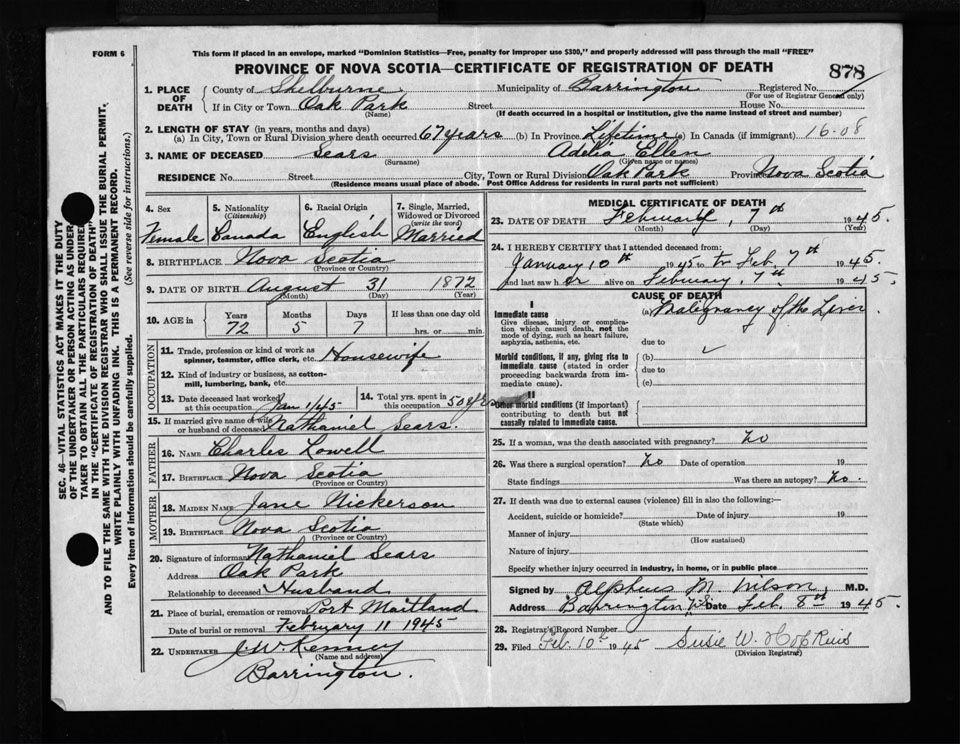 FORM 6
This form if placed in an envelope, marked "Dominion Statistics—Free, penalty for improper use $300," and properly addressed will pass through the mail "FREE"
PROVINCE OF NOVA SCOTIA—CERTIFICATE OF REGISTRATION OF DEATH
878
1. PLACE OF DEATH County of Shelburne Municipality of Barrington Registered No.
(For use of Registrar General only)
If in City or Town Oak Park Street House No.
(Name) (If death occurred in a hospital or institution, give the name instead of street and number)
2. LENGTH OF STAY (in years, months and days)
(a) In City, Town or Rural Division where death occurred 67 years (b) In Province Lifetime (c) In Canada (if immigrant) 16-08
3. NAME OF DECEASED Sears Adelia Ellen
(Surname) (Given name or names)
RESIDENCE No. Street City, Town or Rural Division Oak Park Province Nova Scotia
(Residence means usual place of abode. Post Office Address for residents in rural parts not sufficient)
4. Sex Female
5. Nationality (Citizenship) Canada
6. Racial Origin English
7. Single, Married, Widowed or Divorced (write the word) Married
8. BIRTHPLACE Nova Scotia
(Province or Country)
9. DATE OF BIRTH August 31 1872
(Month) (Day) (Year)
10. AGE in Years Months Days If less than one day old
72 5 7 hrs. or min.
OCCUPATION
11. Trade, profession or kind of work as spinner, teamster, office clerk, etc. Housewife
12. Kind of industry or business, as cotton-mill, lumbering, bank, etc.
13. Date deceased last worked at this occupation Jan 1/45
14. Total yrs. spent in this occupation 50 yrs
15. If married give name of wife or husband of deceased Nathaniel Sears.
FATHER
16. NAME Charles Lowell
17. BIRTHPLACE Nova Scotia
(Province or Country)
MOTHER
18. MAIDEN NAME Jane Nickerson
19. BIRTHPLACE Nova Scotia
(Province or Country)
20. Signature of informant Nathaniel Sears
Address Oak Park
Relationship to deceased Husband
21. Place of burial, cremation or removal Port Maitland
Date of burial or removal February 11 1945
22. UNDERTAKER J. W. Kenney
(Name and address)
Barrington.
MEDICAL CERTIFICATE OF DEATH
23. DATE OF DEATH February, 7th 1945.
(Month) (Day) (Year)
24. I HEREBY CERTIFY that I attended deceased from:
January 10th 1945 to Feb. 7th 1945.
and last saw her alive on February, 7th. 1945.
CAUSE OF DEATH
I
Immediate cause (a) Malignancy of the Liver
Give disease, injury or complication which caused death, not the mode of dying, such as heart failure, asphyxia, asthenia, etc.
due to
Morbid conditions, if any, giving rise to immediate cause (stated in order proceeding backwards from immediate cause).
(b)
due to
(c)
II
Other morbid conditions (if important) contributing to death but not causally related to immediate cause.
25. If a woman, was the death associated with pregnancy? No
26. Was there a surgical operation? No Date of operation 19
State findings Was there an autopsy? No.
27. If death was due to external causes (violence) fill in also the following:—
Accident, suicide or homicide? Date of injury 19
(State which)
Manner of injury
(How sustained)
Nature of injury
Specify whether injury occurred in industry, in home, or in public place
Signed by Alpheus M. Wilson, M.D.
Address Barrington N.S. Date Feb. 8th 1945.
28. Registrar's Record Number
29. Filed Feb. 10th 1945 Susie W. Hopkins
(Division Registrar)
SEC. 46—VITAL STATISTICS ACT MAKES IT THE DUTY
OF THE UNDERTAKER OR PERSON ACTING AS UNDER-
TAKER TO OBTAIN ALL THE PARTICULARS REQUIRED
IN THE "CERTIFICATE OF REGISTRATION OF DEATH" AND TO FILE THE SAME WITH THE DIVISION REGISTRAR WHO SHALL ISSUE THE BURIAL PERMIT.
WRITE PLAINLY WITH UNFADING INK. THIS IS A PERMANENT RECORD.
Every item of information should be carefully supplied. (See reverse side for instructions.)